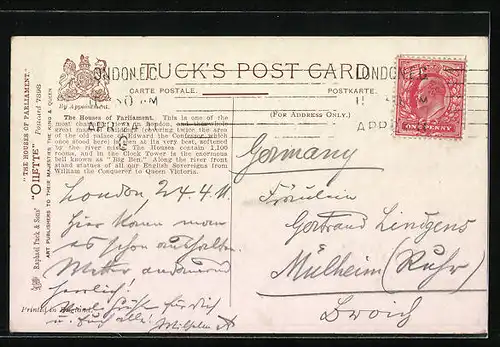 TUCK'S POST CARD
CARTE POSTALE.
POSTKARTE.
By Appointment.
LONDON.E.C.
LONDON.E.C.
APR 24
APR
ONE PENNY
(FOR ADDRESS ONLY.)
The Houses of Parliament. This is one of the
most in London, and the whole
great building (covering twice the area
of the old Edward the Confessor which
once stood here) is seen at its very best, softened
by the river mist. The Houses contain 1,100
rooms, and in the Clock Tower is the enormous
bell known as "Big Ben." Along the river front
stand statues of all our English Sovereigns from
William the Conqueror to Queen Victoria.
"THE HOUSES OF PARLIAMENT."
"OILETTE" Postcard 7898
Raphael Tuck & Sons'
ART PUBLISHERS TO THEIR MAJESTIES THE KING & QUEEN
Printed in England.
London 24.4.11.
Hier kann man
es schon aushalten.
Wetter andauernd
herrlich!
Viele Grüße für Dich
u. Euch alle! Wilhelm
Germany
Fräulein
Gertrand Lindgens
Mülheim (Ruhr)
Broich